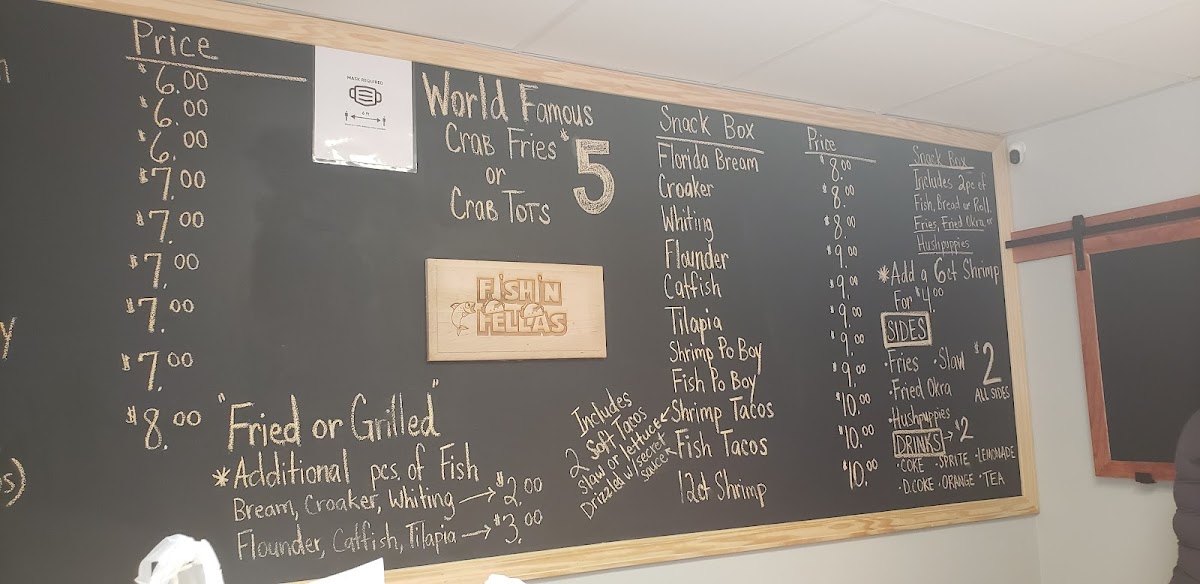 Price
$6.00
$6.00
$6.00
$7.00
$7.00
$7.00
$7.00
$7.00
$8.00
MASK REQUIRED
World Famous
Crab Fries
or
Crab Tots
$5
FISHIN
FELLAS
"Fried or Grilled"
*Additional pcs. of Fish
Bream, Croaker, Whiting → $2.00
Flounder, Catfish, Tilapia → $3.00
Includes
2 Soft Tacos
Slaw or lettuce
Drizzled w/secret
sauce
Snack Box
Florida Bream
Croaker
Whiting
Flounder
Catfish
Tilapia
Shrimp Po Boy
Fish Po Boy
Shrimp Tacos
Fish Tacos
12ct Shrimp
Price
$8.00
$8.00
$8.00
$9.00
$9.00
$9.00
$9.00
$9.00
$10.00
$10.00
$10.00
Snack Box
Includes 2pc of
Fish, Bread or Roll.
Fries, Fried Okra, or
Hushpuppies
*Add a 6ct Shrimp
For $4.00
SIDES
·Fries ·Slaw
·Fried Okra
·Hushpuppies
$2
ALL SIDES
DRINKS → $2
·COKE ·SPRITE ·LEMONADE
·D.COKE ·ORANGE ·TEA